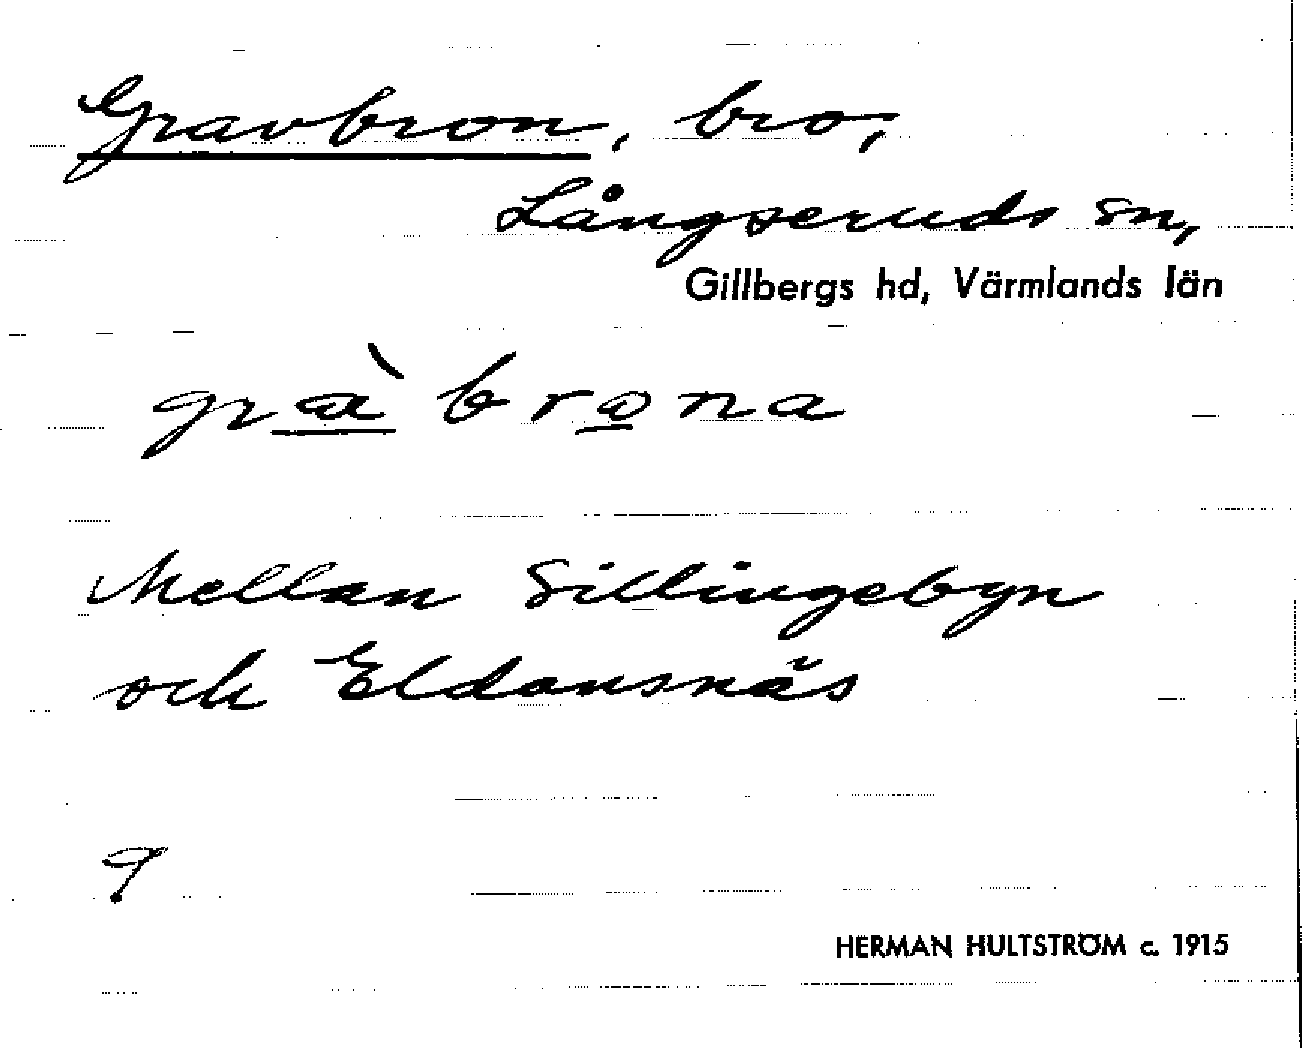 Gravbron, bro,
Långseruds sn,
Gillbergs hd, Värmlands län
gràbrona
Mellan Sillingebyn
och Eldansnäs
9
HERMAN HULTSTRÖM c. 1915